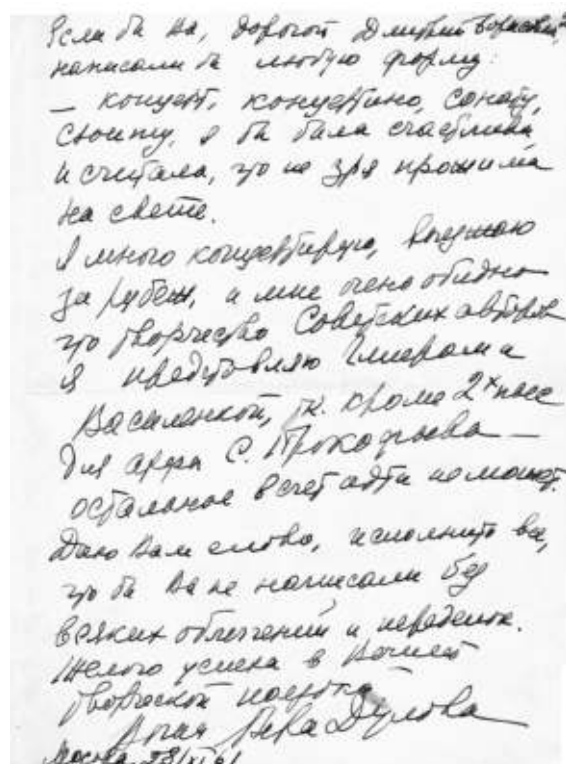 Если бы Вы, дорогой Дмитрий Борисович,
написали бы любую форму:
— концерт, концертино, сонату,
сюиту, я бы была счастлива
и считала, что не зря прожила
на свете.
Я много концертирую, выезжаю
за рубеж, и мне очень обидно
что творчество Советских авторов
я представляю Глиером и
Василенкой, т.к. кроме 2х пьес
для арфы С. Прокофьева —
остальное в счет идти не может.
Даю Вам слово, исполнить все,
что бы Вы не написали без
всяких облегчений и переделок.
Желаю успеха в Вашей
творческой
Ваша Вера Дулова
Москва 28/XI 61